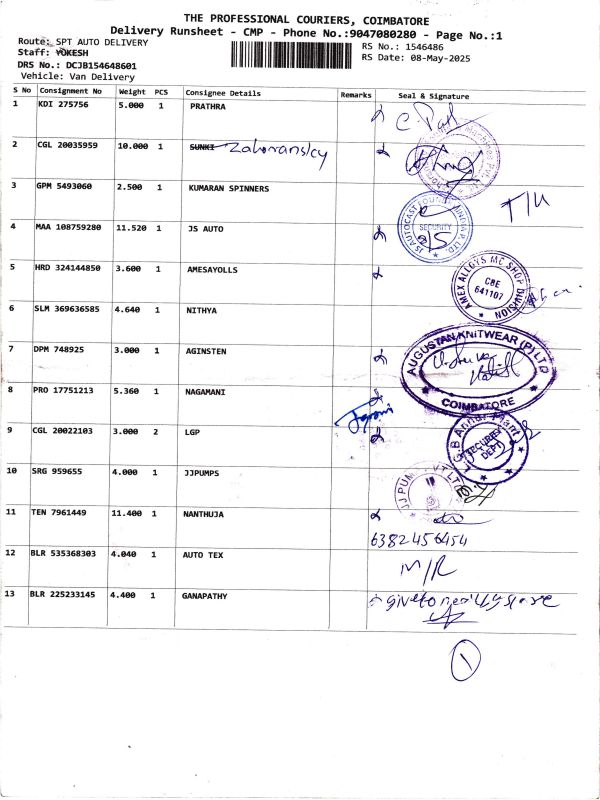 THE PROFESSIONAL COURIERS, COIMBATORE
Delivery Runsheet - CMP - Phone No.:9047080280 - Page No.:1
Route: SPT AUTO DELIVERY
Staff: YOKESH
RS No.: 1546486
DRS No.: DCJB154648601
RS Date: 08-May-2025
Vehicle: Van Delivery
S No Consignment No Weight PCS Consignee Details Remarks Seal & Signature
1 KDI 275756 5.000 1 PRATHRA
2 CGL 20035959 10.000 1 SUNKI
3 GPM 5493060 2.500 1 KUMARAN SPINNERS
JS AUTOCAST FOUNDRY INDIA P. LTD.
SECURITY
4 MAA 108759280 11.520 1 JS AUTO
5 HRD 324144850 3.600 1 AMESAYOLLS
AMEX ALLOYS MC SHOP DIVISION
CBE
641107
6 SLM 369636585 4.640 1 NITHYA
AUGUSTAN KNITWEAR (P) LTD
COIMBATORE
7 DPM 748925 3.000 1 AGINSTEN
8 PRO 17751213 5.360 1 NAGAMANI
9 CGL 20022103 3.000 2 LGP
SECURITY
DEPT
10 SRG 959655 4.000 1 JJPUMPS
JJ PUM
11 TEN 7961449 11.400 1 NANTHUJA
6382456454
12 BLR 535368303 4.040 1 AUTO TEX
M/R
13 BLR 225233145 4.400 1 GANAPATHY
1